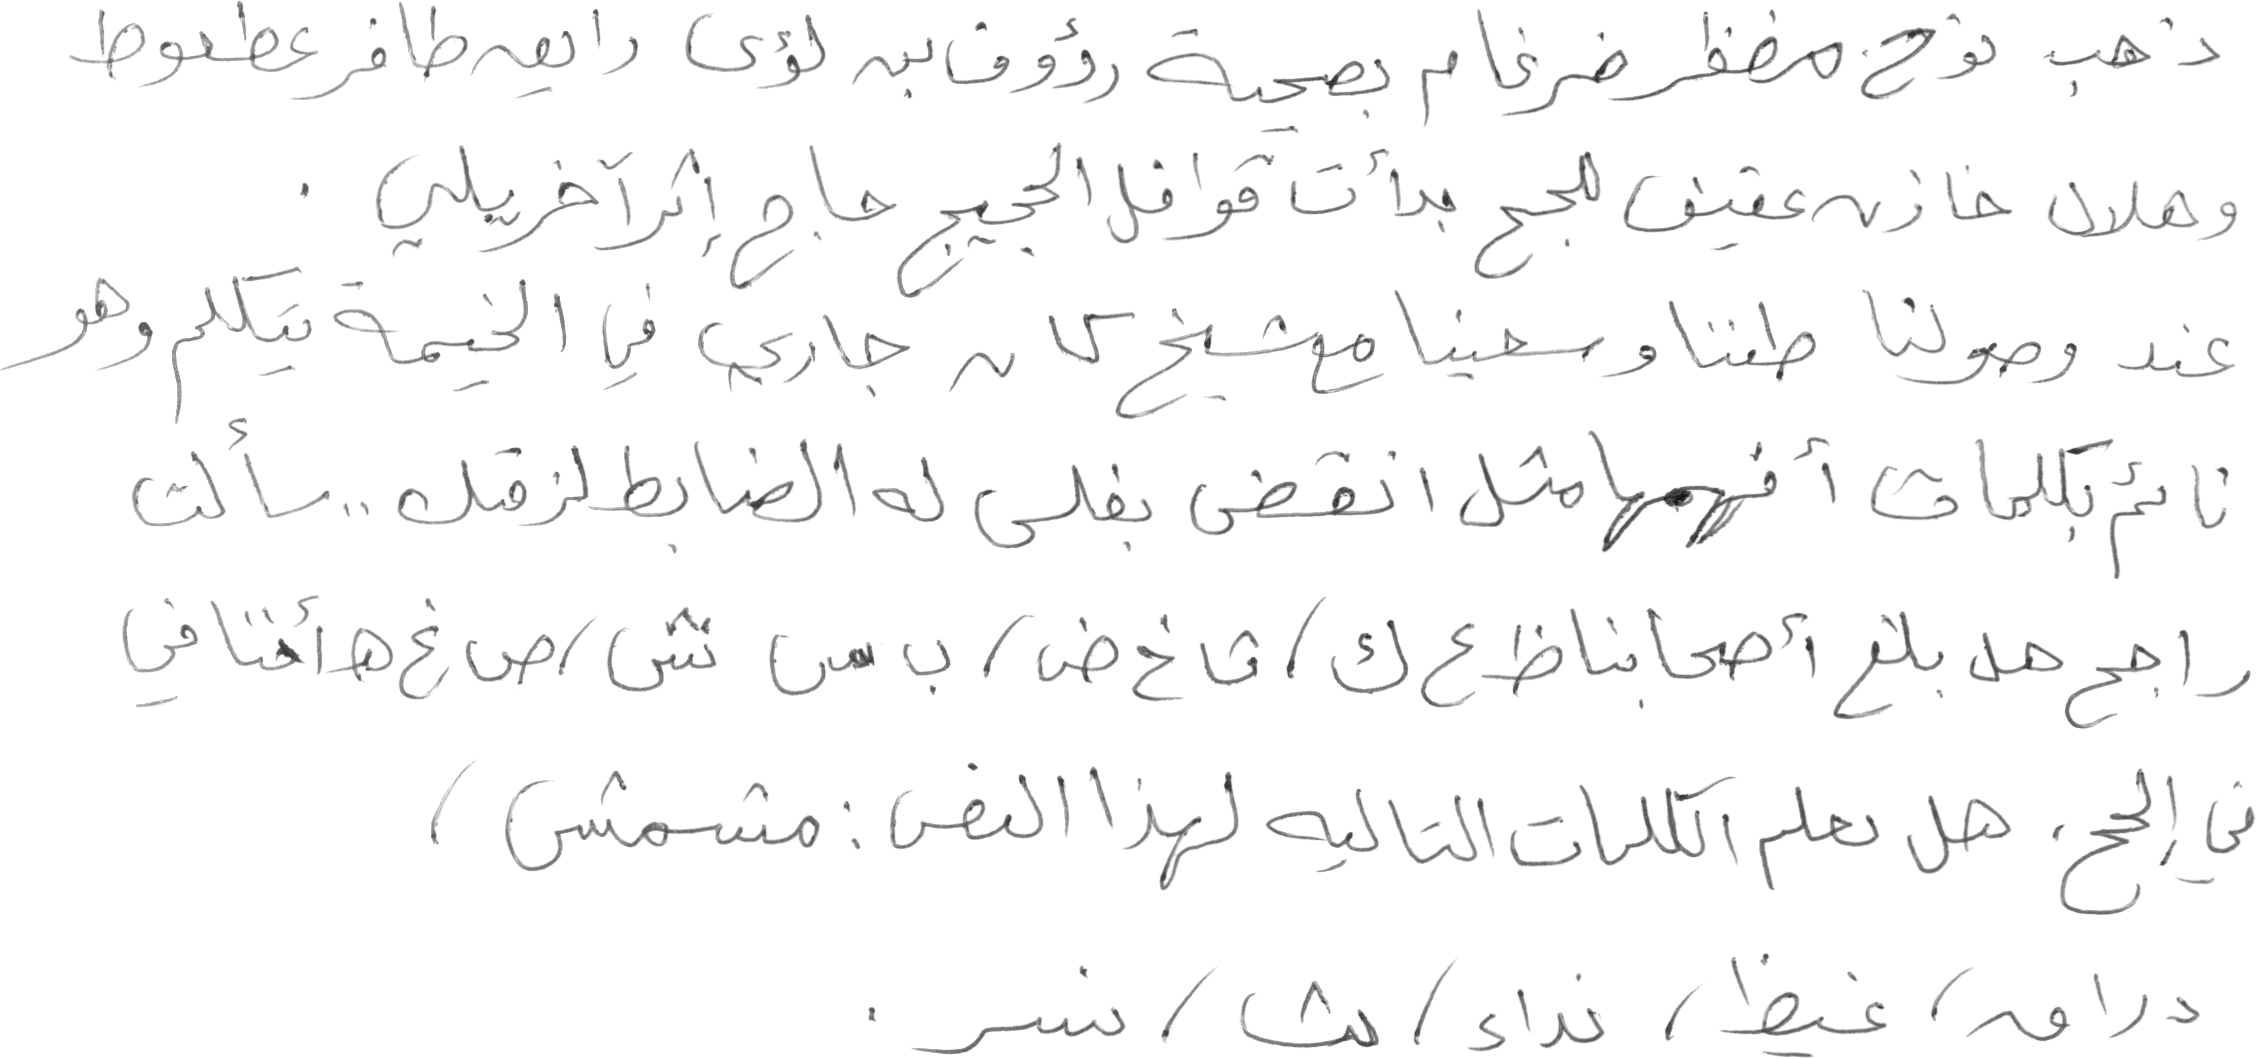 ذهب نوح مظفر ضرغام بصحبة رؤوف بن لؤى رايق ظافر عطعوط
وهلال خازن عفيف للحج بدأت قوافل الحجيج حاج إثر آخر يلي .
عند وصولنا طفنا وسعينا مع شيخ كان جاري في الخيمة يتكلم وهو
نائم بكلمات أفهمها مثل انقض بغلس له الضابط لزقك .. سألت
راجح هل بلغ أصحابنا ظ ع ك / ث خ ض / ب س شش / ص غ ه أختنا في
في الحج . هل تعلم الكلمات التاليه لهذا النص : مشمش /
دراق / غيظ / نداء / بث / نسر .